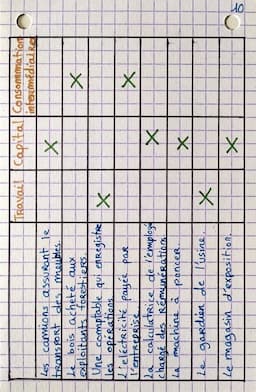 10
Travail Capital Consommation intermédiaire
Les camions assurant le
transport des meubles. X
Le bois acheté aux
exploitants forestiers X
Une comptable qui enregistre
les opérations. X
L'électricité payée par
l'entreprise X
La calculatrice de l'employé
chargé des rémunérations X
La machine à poncer. X
Le gardien de l'usine. X
Le magasin d'exposition. X